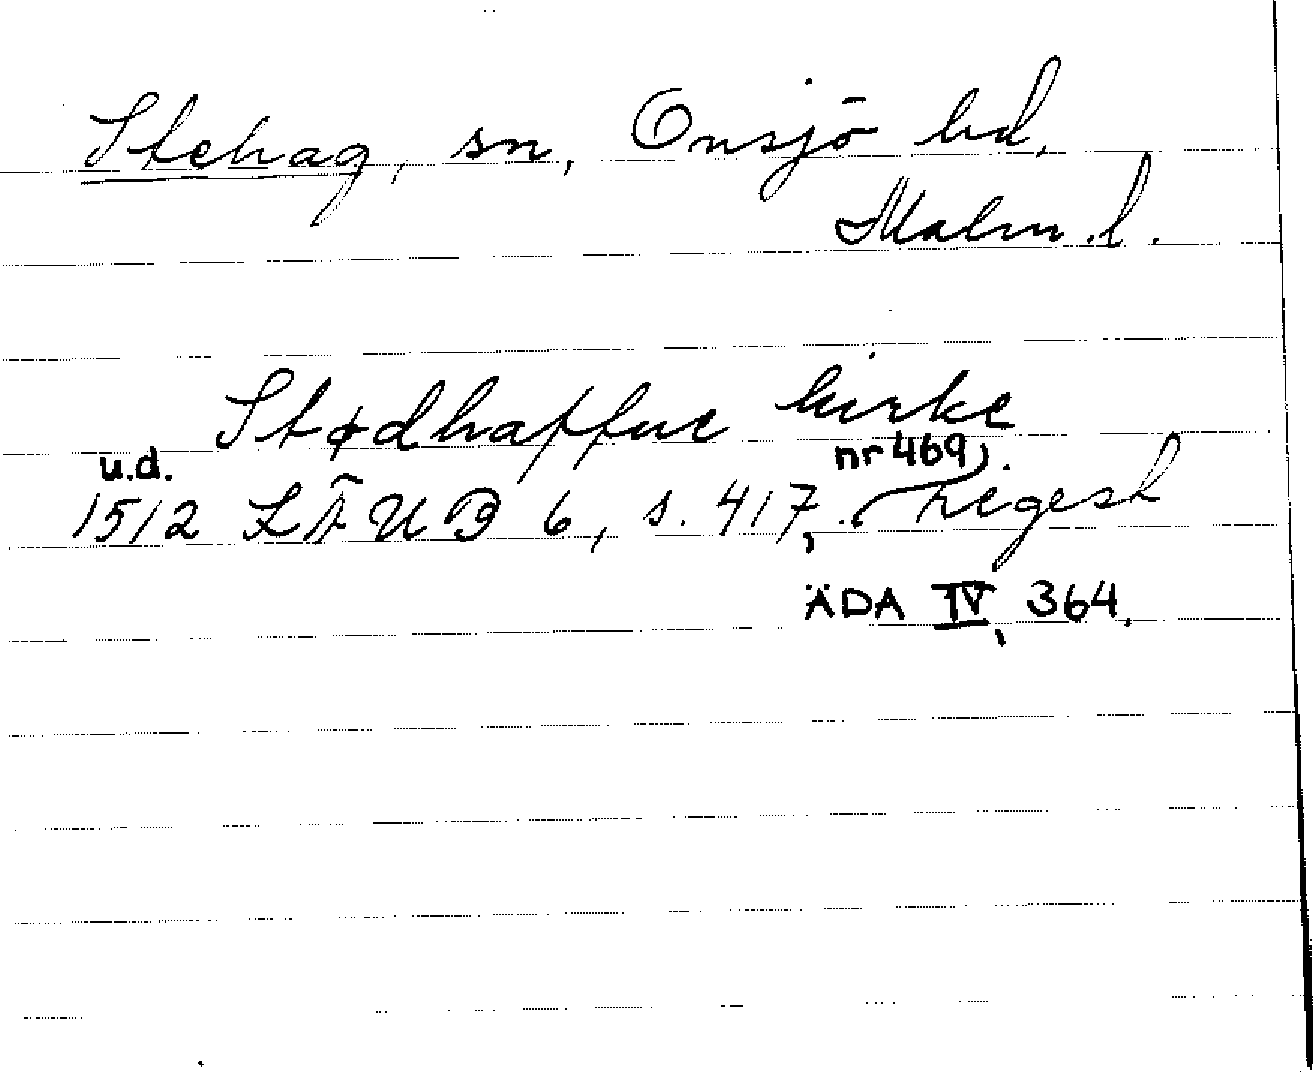 Stehag, sn, Onsjö hd,
Malm. l.
Stødhaffue kirke
u.d. nr 469).
1512 LÄUB 6, s. 417, regest
ÄDA IV, 364.